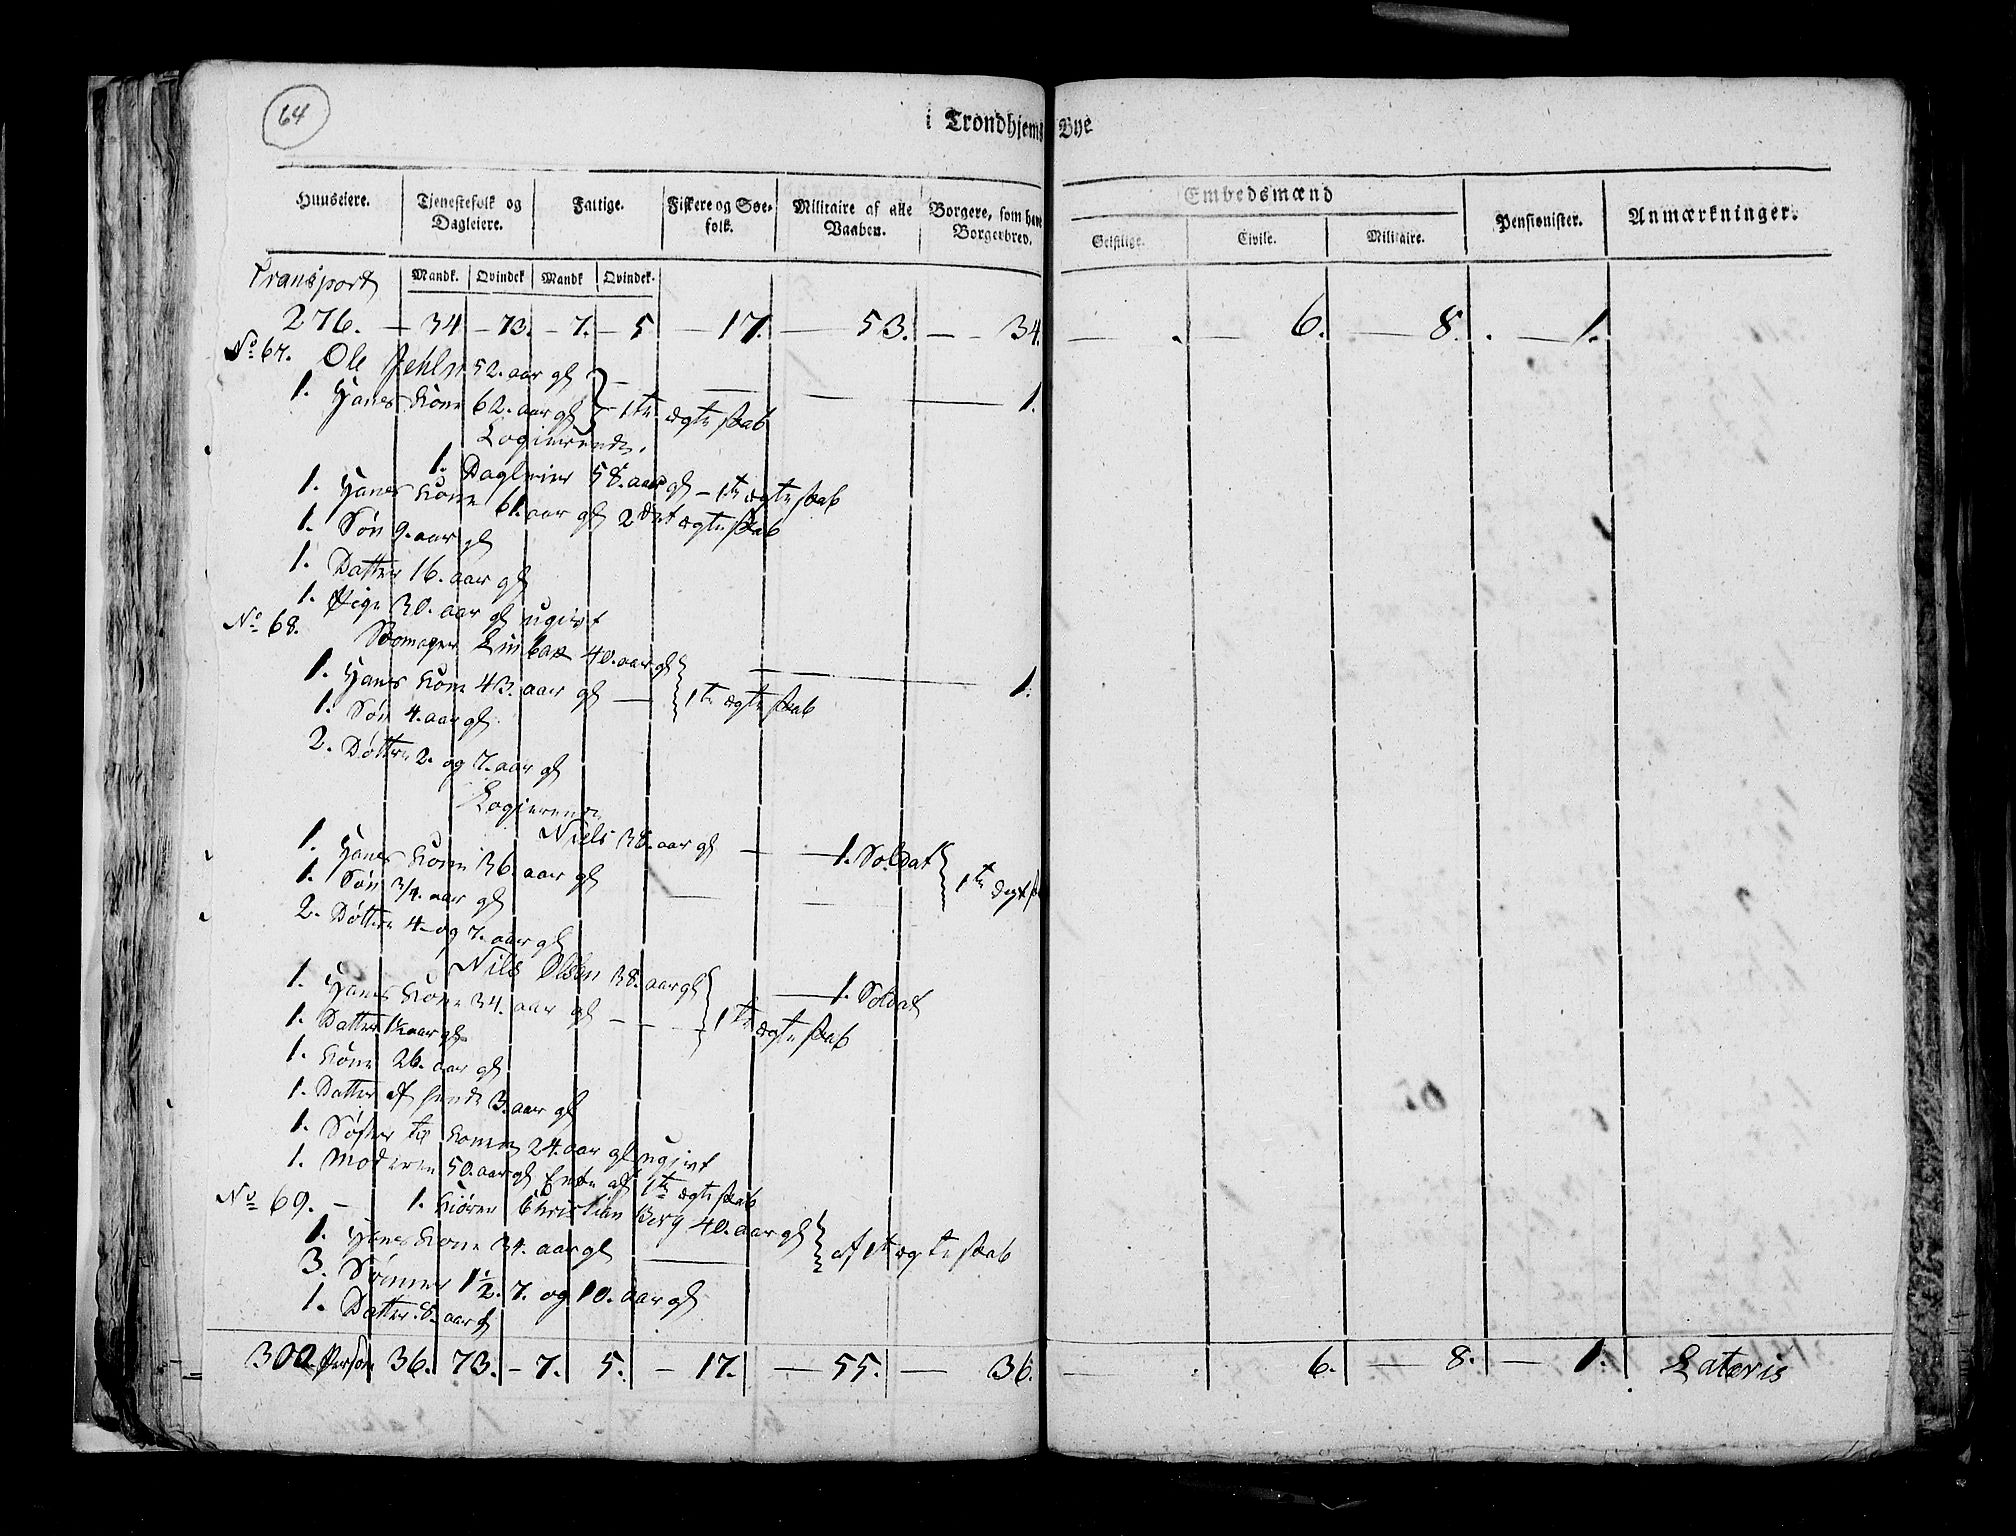 64
i Trondhjems Bye
Huuseiere. Tjenestefolk og Dagleiere. Fattige. Fiskere og Søefolk. Militaire af alle Vaaben. Borgere, som have Borgerbrev. Embedsmænd Geistlige. Civile. Militaire. Pensionister. Anmærkninger.
Transport Mandk. Qvindek Mandk Qvindek.
276. — 34 — 73. — 7. — 5 — 17. — 53. — — 34. — . 6. — 8. — 1.
No 67. Ole 52. aar gl
1. Hanes Kone 62. aar gl } 1te ægteskab — 1.
Logierende.
1. Dagleier 58. aar gl — 1te ægteskab
1. Hanes Kone 61. aar gl 2det ægteskab
1. Søn 9. aar gl
1. Datter 16. aar gl
1. Pige 30. aar gl ugivt
No 68. Skomager Linbak 40. aar gl
1. Hanes Kone 43. aar gl — } 1te ægteskab — 1.
1. Søn 4. aar gl
2. Døttre 2. og 7. aar gl
Logierende
Niels 38. aar gl — 1. Soldat
1. Hanes Kone 36. aar gl } 1te ægtesk
1. Søn 3/4. aar gl
2. Døttre 4 og 7. aar gl
Nils Olsen 38. aar gl — 1. Soldat
1. Hanes Kone 34. aar gl — } 1te ægteskab
1. Datter 1½ aar gl
1. Kone 26. aar gl
1. Datter af hende 3. aar gl
1. Søster til Konen 24. aar gl ugivt
1. Moderen 50. aar gl Enke af 1te ægteskab
No 69. — 1. Kiører Christian Berg 40. aar gl
1. Hanes Kone 34. aar gl — } af 1te ægteskab
3. Sønner 1½. 7. og 10. aar gl
1. Datter 8. aar gl
300 Person 36. 73. — 7. 5. — 17. — 55. — 36. — . 6. — 8. — 1. Lateris